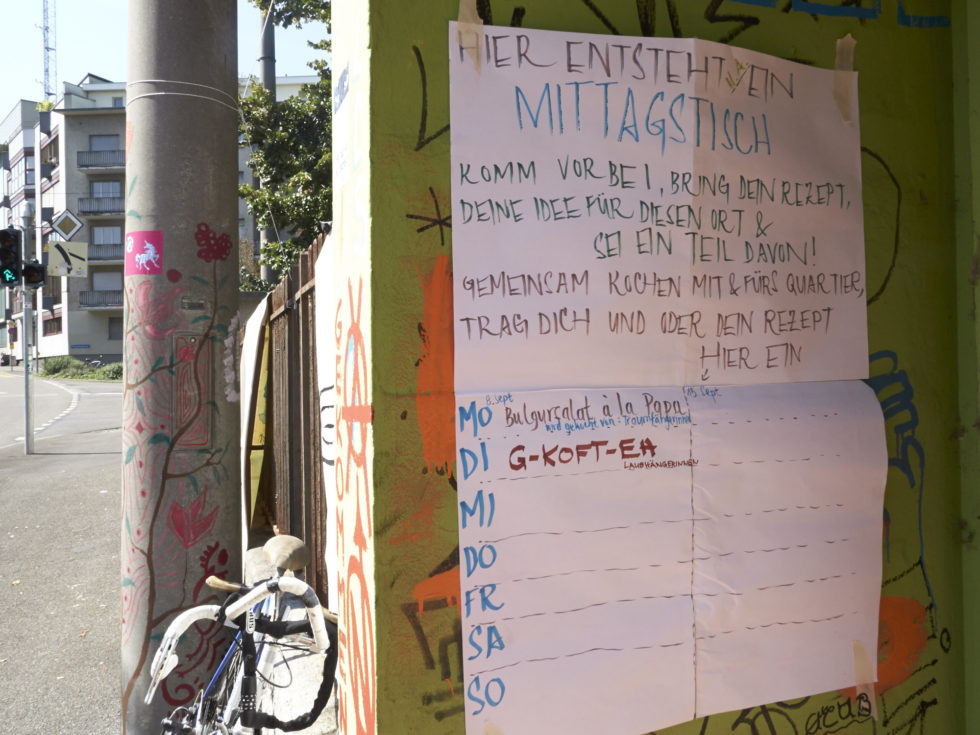 HIER ENTSTEHT EIN
MITTAGSTISCH
KOMM VORBEI, BRING DEIN REZEPT,
DEINE IDEE FÜR DIESEN ORT &
SEI EIN TEIL DAVON!
GEMEINSAM KOCHEN MIT & FÜRS QUARTIER,
TRAG DICH UND ODER DEIN REZEPT
HIER EIN
8. Sept
15. Sept.
MO Bulgursalat à la Papa
wird gekocht von: Traumfängerinnen
DI G-KOFT-EH
LAUBHÄNGERINNEN
MI
DO
FR
SA
SO